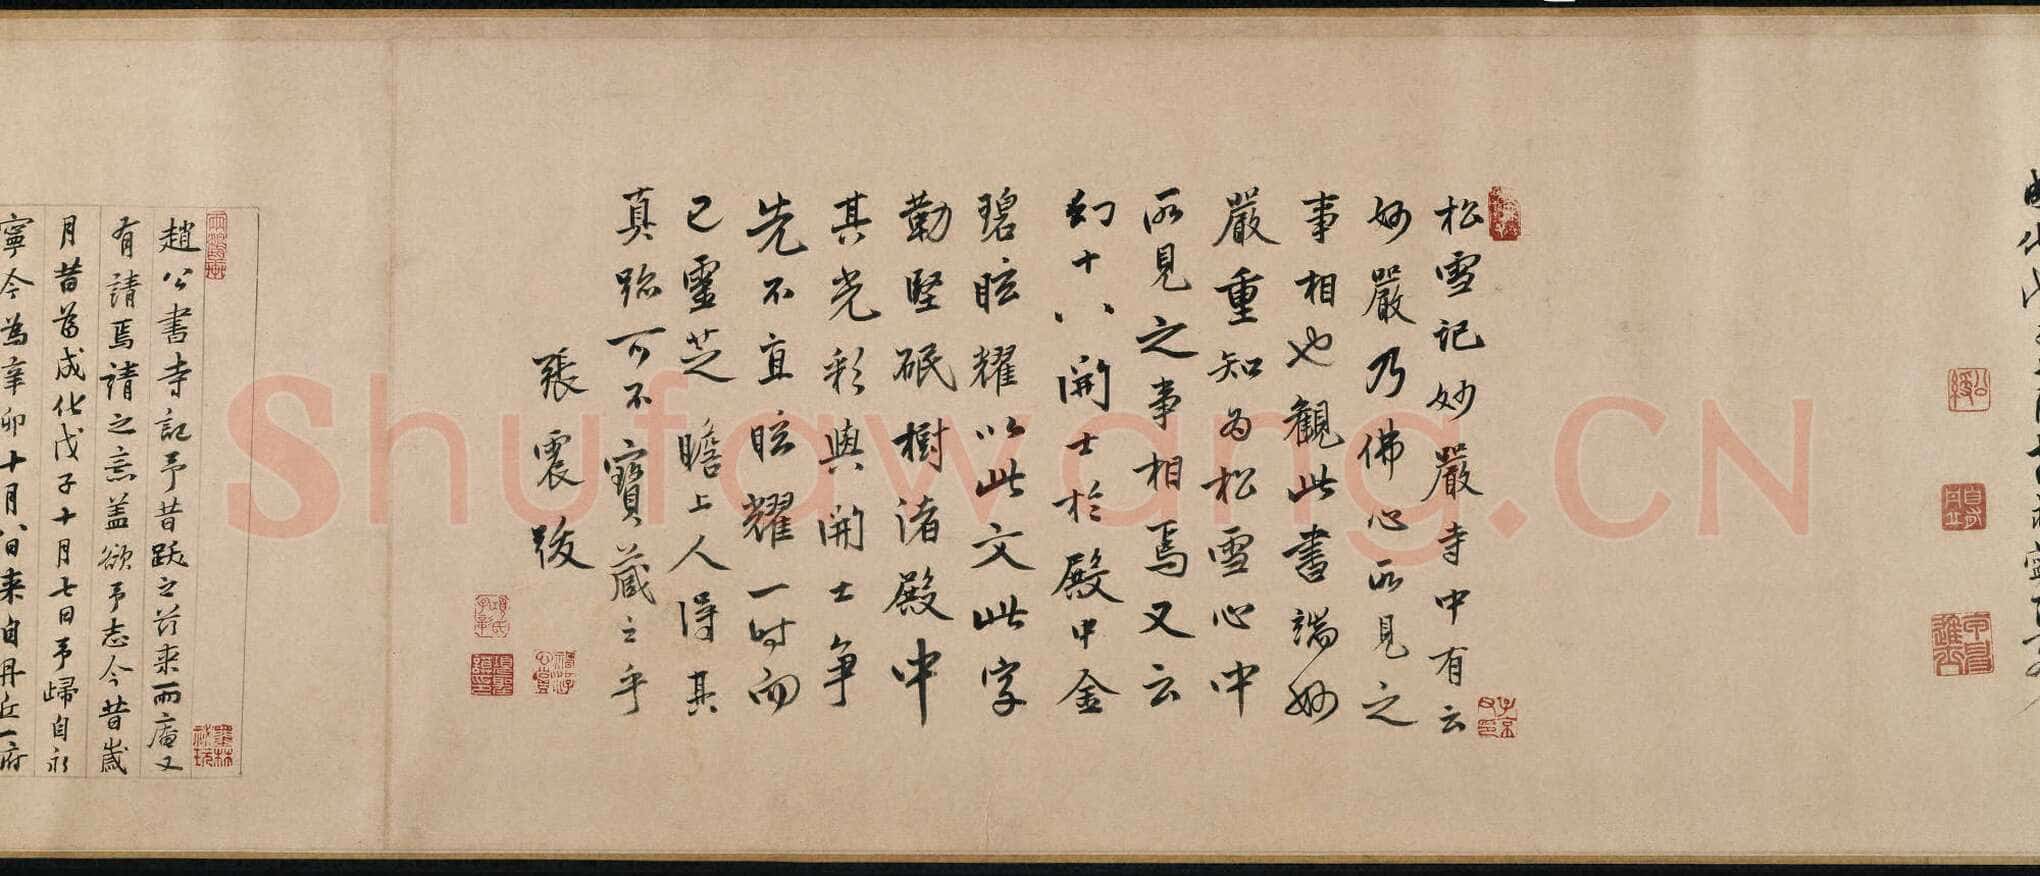 松雪記妙嚴寺中有云
妙嚴乃佛心所見之
事相也觀此書端妙
嚴重知為松雪心中
所見之事相焉又云
幻十八開士於殿中金
碧眩耀以此文此字
勒堅珉樹諸殿中
其光彩與開士爭
先不直眩耀一時而
已靈芝瞻上人得其
真跡可不寶藏之乎
張震跋
趙公書寺記予昔跋之若來而庵又
有請焉請之意蓋欲予志今昔歲
月昔為成化戊子十月七日予歸自永
寧今為辛卯十月八日來自丹丘一府
Shufawang.CN